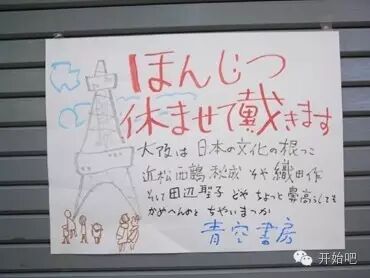 ほんじつ
休ませて戴きます
大阪は日本の文化の根っこ
近松西鶴秋成そや織田作
そして田辺聖子どやちょっと鼻高うしても
かめへんのとちゃいまっか
青空書房
开始吧